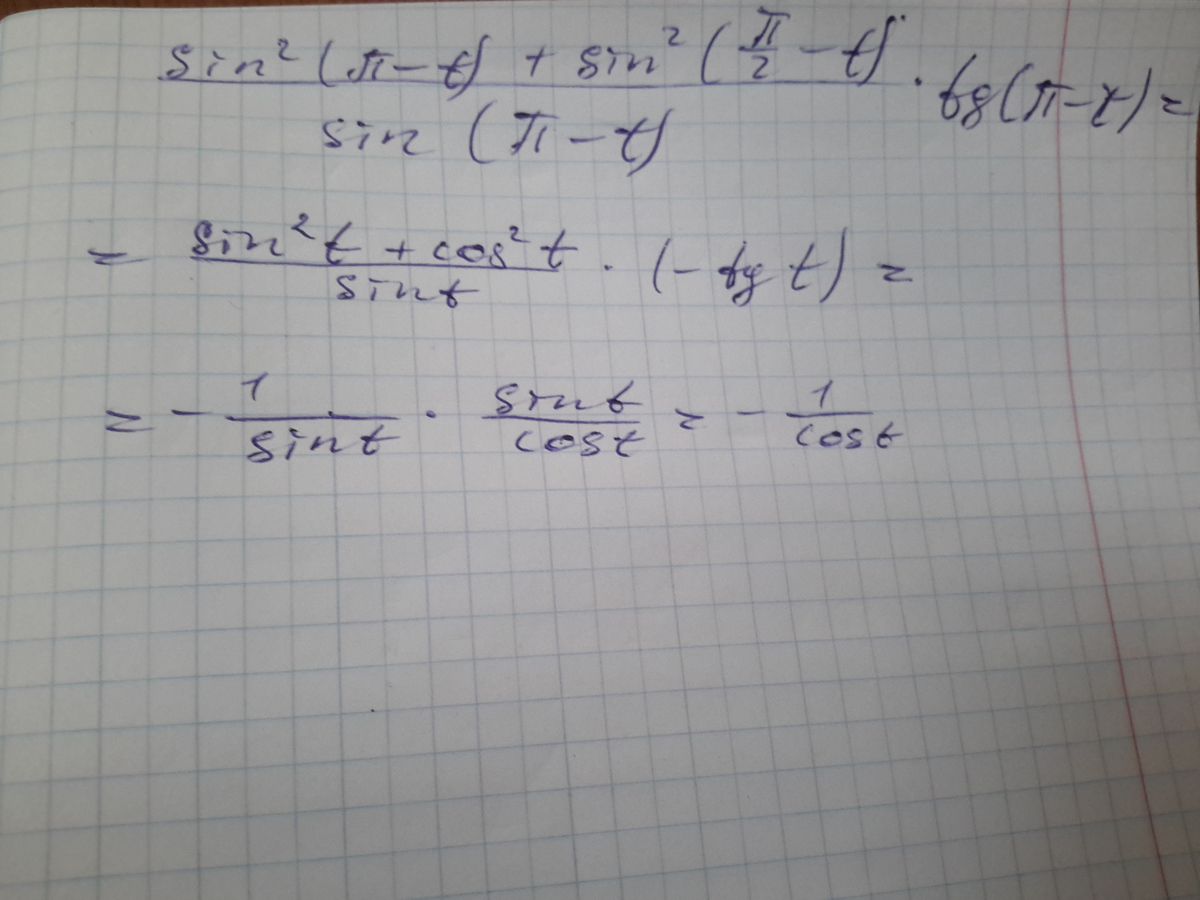 sin²(π-t) + sin²(π/2 - t) / sin(π-t) · tg(π-t) =
= sin²t + cos²t / sint · (-tg t) =
= - 1/sint · sint/cost = - 1/cost